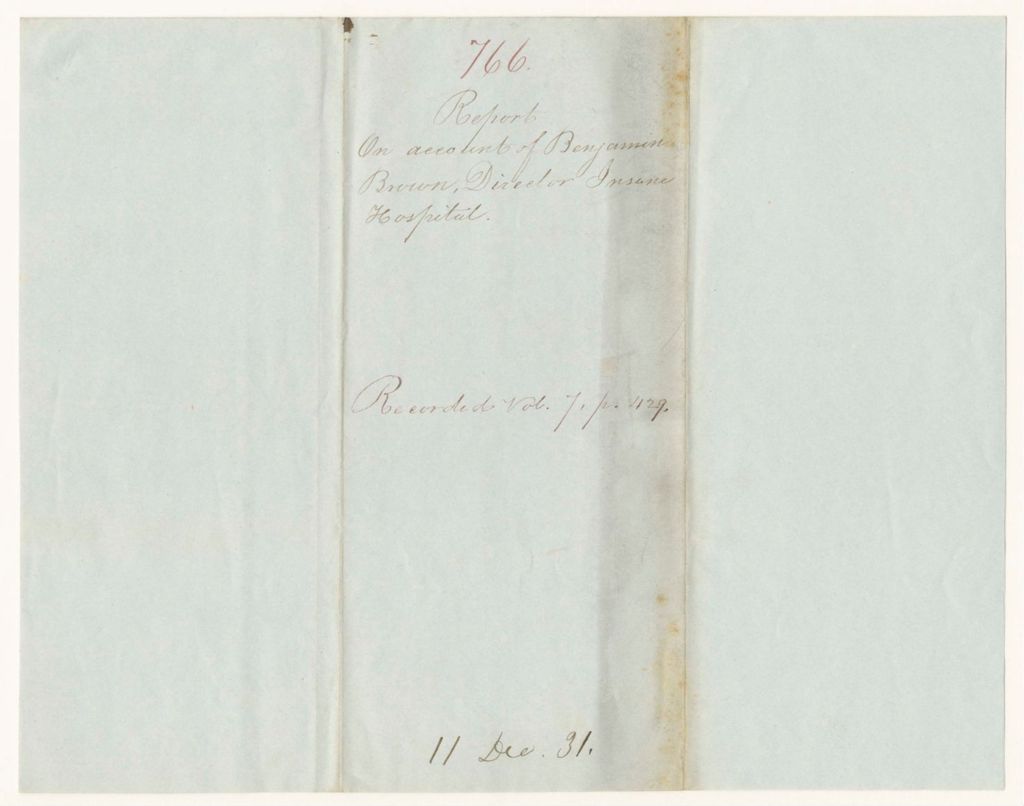 766.
Report
On account of Benjamin
Brown, Director Insane
Hospital.
Recorded Vol. 7, p. 429.
11 Dec. 31.